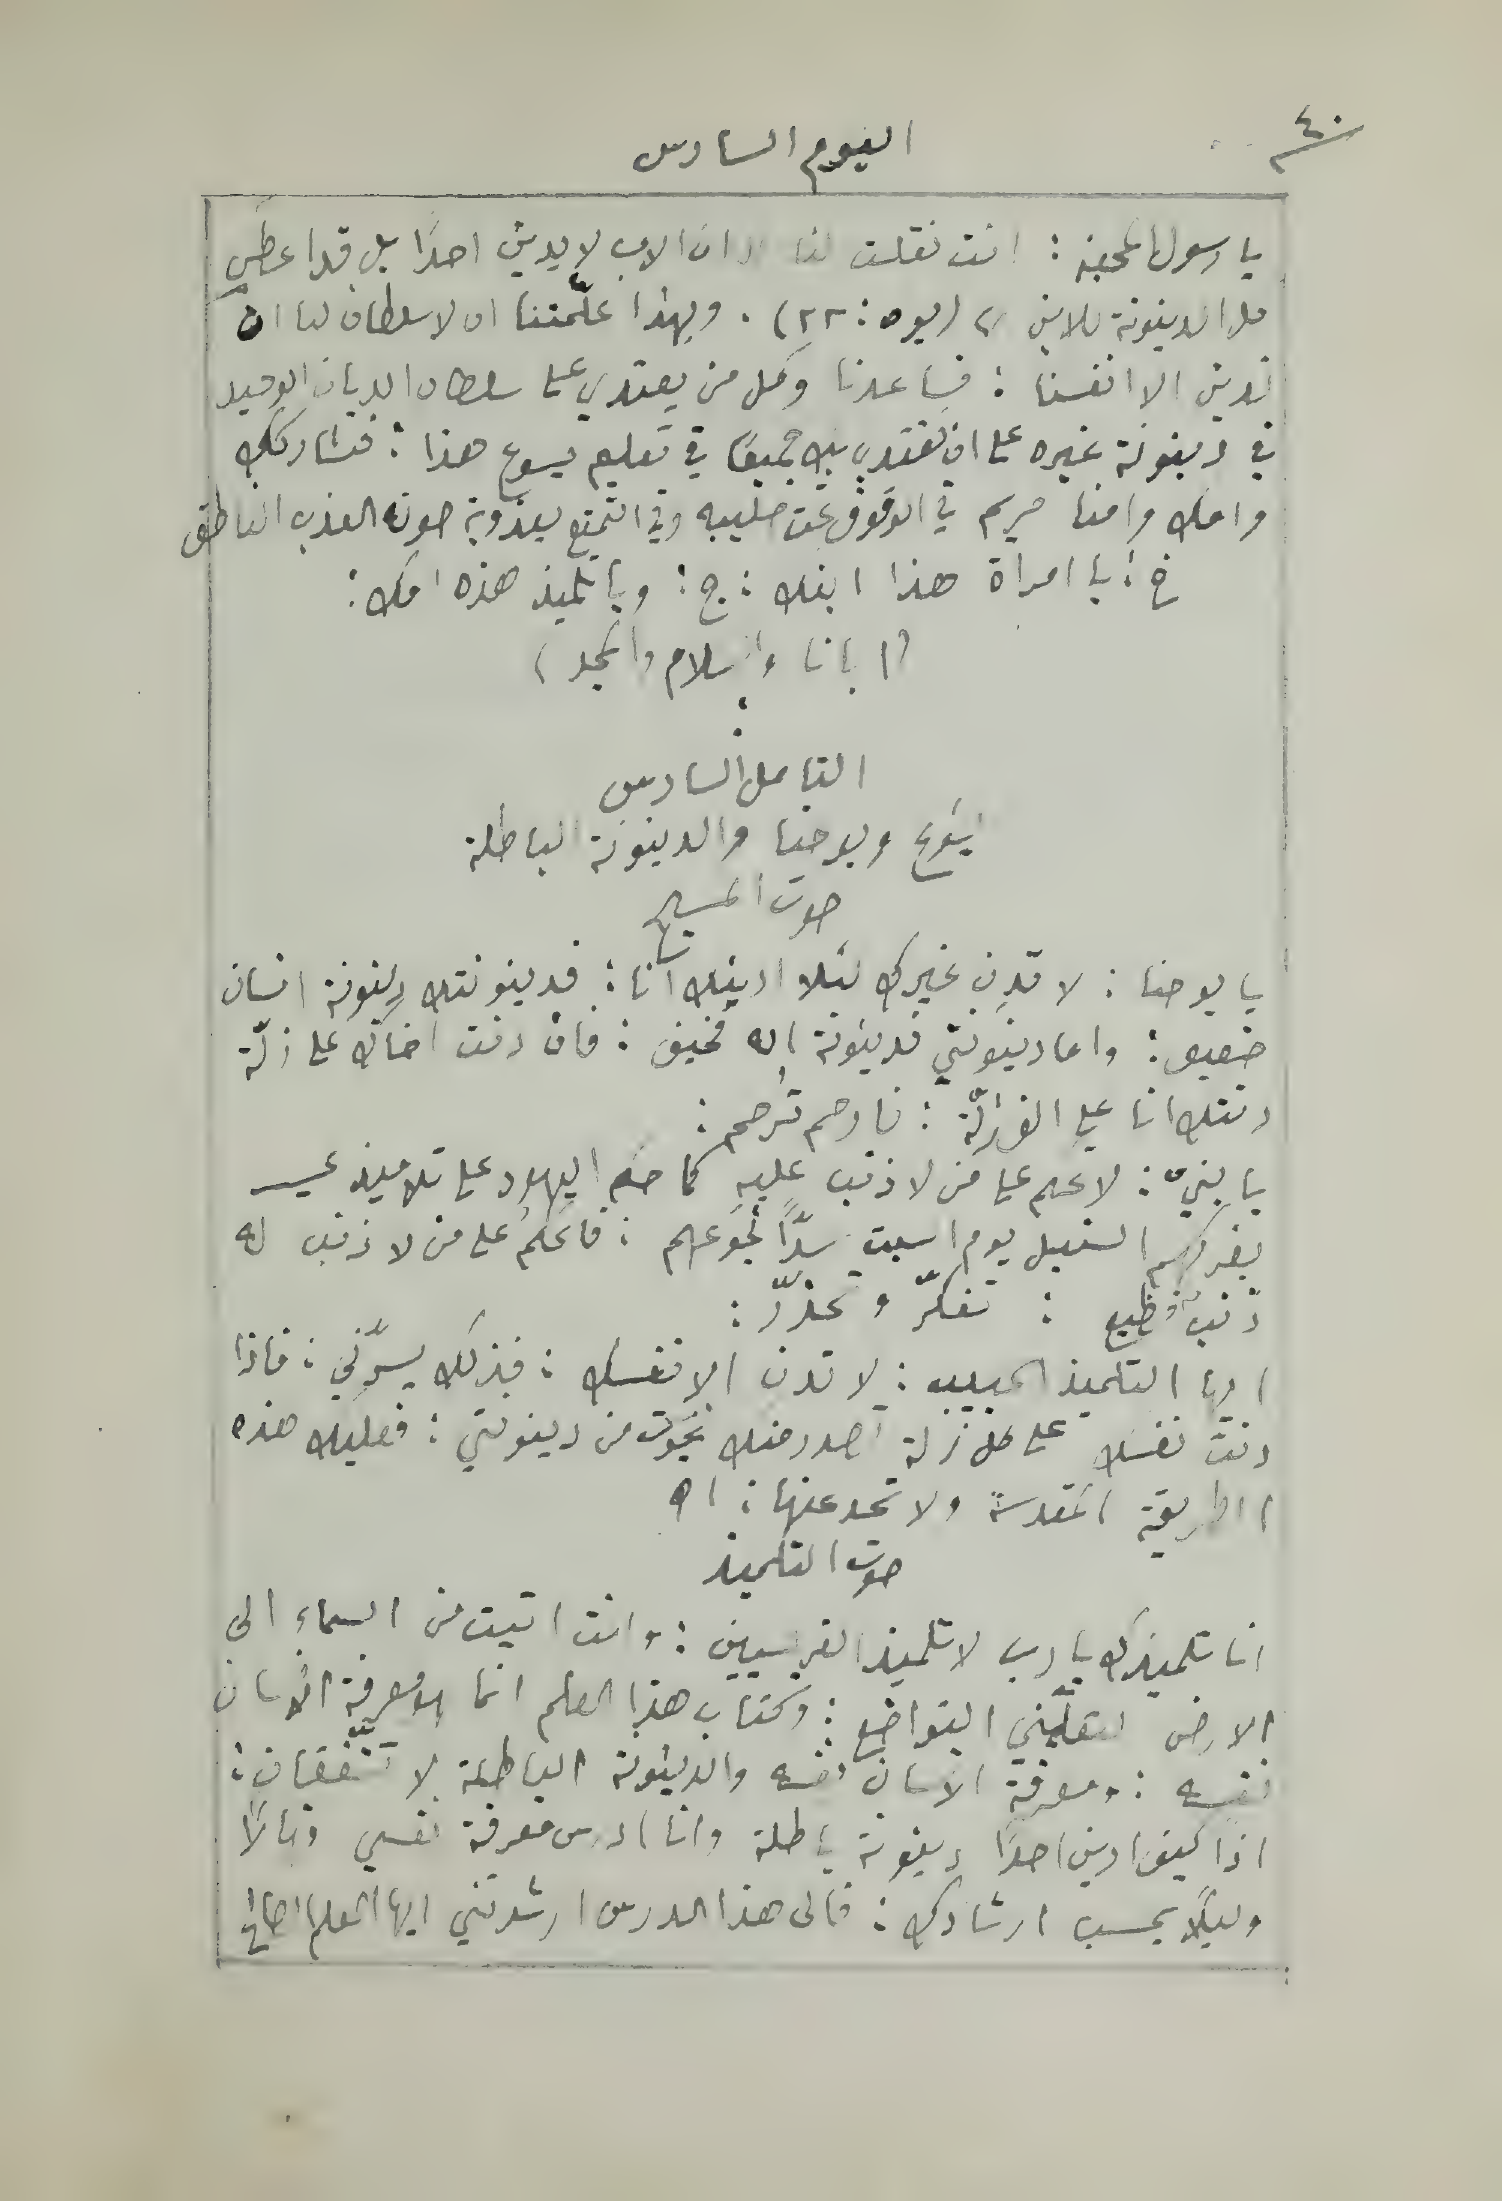 ٤٠
اليوم السادس
يا رسول المحبة : انت نقلت لنا ان الاب لا يدين احدًا بل قد اعطى
كل الدينونة للابن » (يو ٥ : ٢٢) . وبهذا علّمتنا ان لا سلطان لنا ان
ندين الا انفسنا : فساعدنا وكل من يعتدي على سلطان الديان الوحيد
في دينونة غيره على ان نقتدي بك جميعًا في تعليم يسوع هذا : فنشاركك
وامك وامنا مريم في الوقوف تحت صليبه وفي التمتع بعذوبة صوته العذب الناطق
خ : يا امراة هذا ابنك : ج : ويا تلميذ هذه امك :
(ابانا والسلام والمجد)
التامل السادس
يسوع ويوحنا والدينونة الباطلة
صوت المسيح
يا يوحنا : لا تدِن غيرك لئلا ادينك انا : فدينونتك دينونة انسان
ضعيف : واما دينونتي فدينونة اله مخيف : فان دنت اخاك على زلّة
دنتك انا على الف زلّة : فارحم تُرحم :
يا بنيّ : لا تحكم على من لا ذنب عليه كما حكم اليهود على تلاميذي
بفركهم السنبل يوم السبت سدًّا لجوعهم : فالحكم على من لا ذنب له
ذنب فظيع : تفكّر وتحذّر :
ايها التلميذ الحبيب : لا تدن الا نفسك : فبذلك يسرّني : فاذا
دنتَ نفسك على كل زلة تصدر منك نجوت من دينونتي : فعليك هذه
الطريقة المقدسة ولا تحد عنها : اه
صوت التلميذ
انا تلميذك يا رب لا تلميذ الفريسيين : وانت اتيت من السماء الى
الارض لتعلّمني التواضع : وكتاب هذا العلم انما هو معرفة الانسان
نفسه : ومعرفة الانسان نفسه والدينونة الباطلة لا تتّفقان :
اذًا كيف ادين احدًا دينونة باطلة وانا ادرس معرفة نفسي نهارًا
وليلًا بحسب ارشادك : فالى هذا الدرس ارشدتني ايها المعلم الصالح